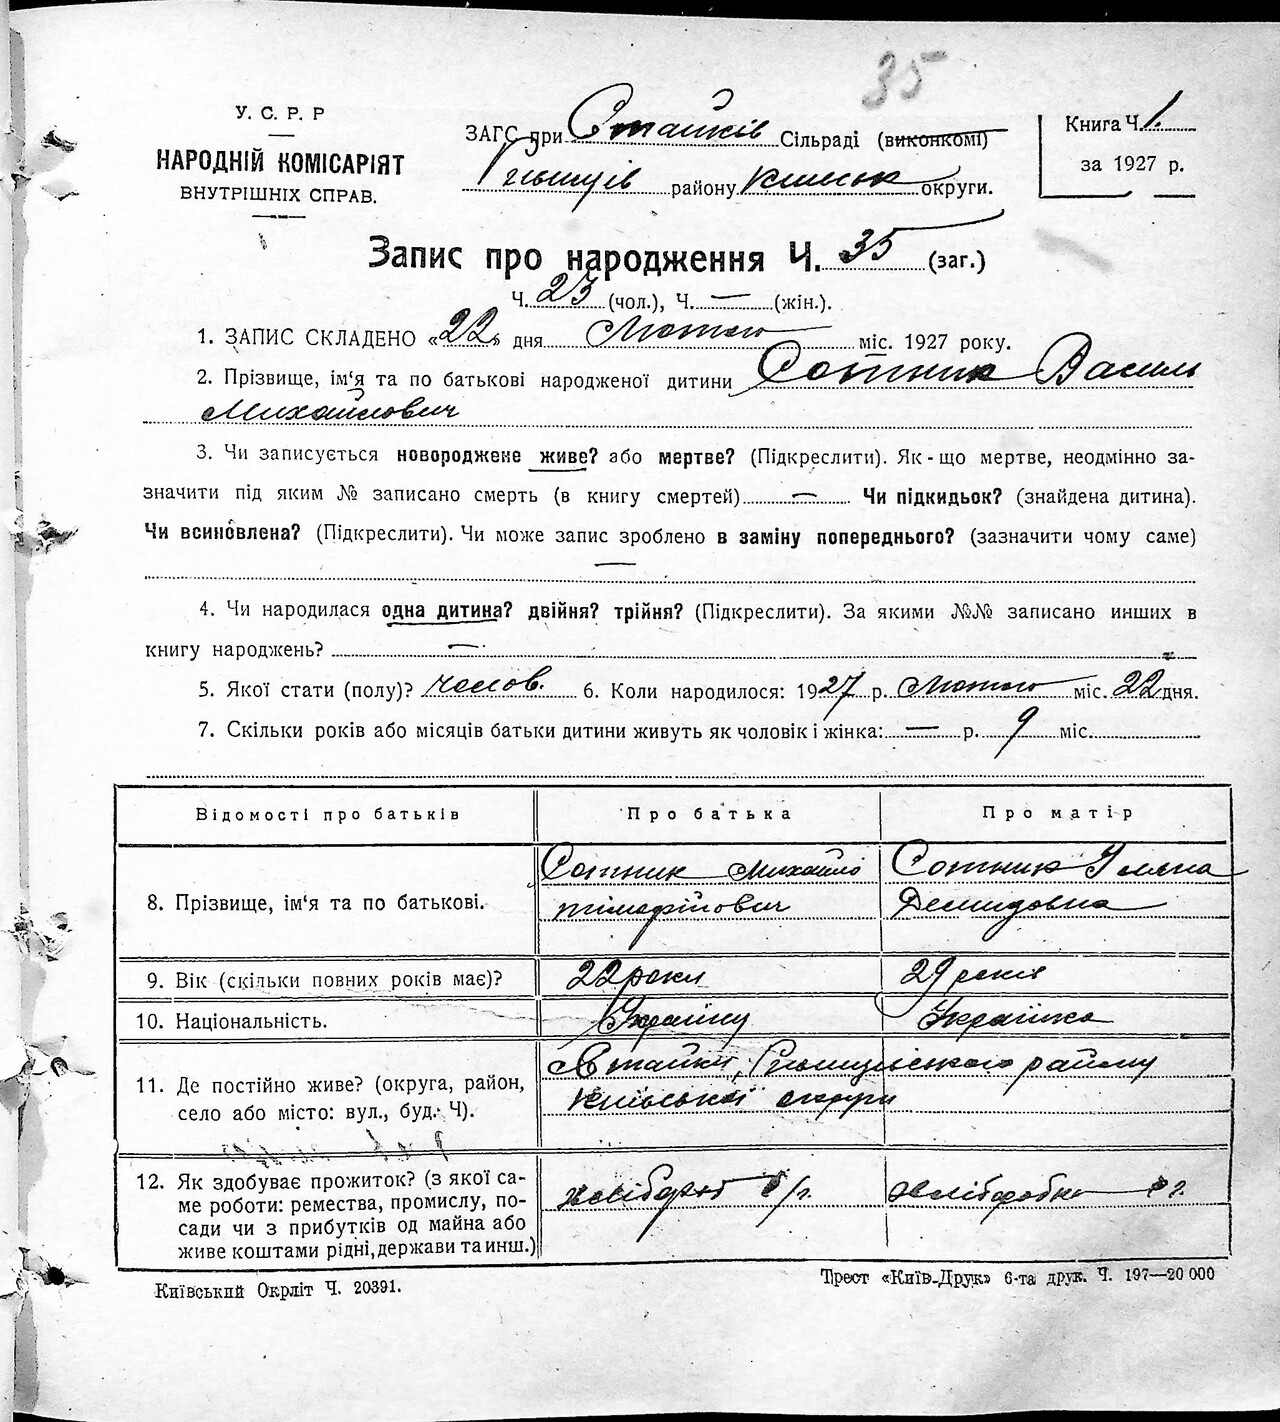 35
У. С. Р. Р
НАРОДНІЙ КОМІСАРІЯТ
ВНУТРІШНІХ СПРАВ.
ЗАГС при Стайків Сільраді (виконкомі)
району округи.
Книга Ч. 1.
за 1927 р.
Запис про народження Ч. 35 (заг.)
Ч. 23 (чол.), Ч. — (жін.).
1. ЗАПИС СКЛАДЕНО «22» дня Лютого міс. 1927 року.
2. Прізвище, ім‘я та по батькові народженої дитини Сотник Василь
Михайлович
3. Чи записується новороджене живе? або мертве? (Підкреслити). Як-що мертве, неодмінно за-
значити під яким № записано смерть (в книгу смертей) — Чи підкидьок? (знайдена дитина).
Чи всиновлена? (Підкреслити). Чи може запис зроблено в заміну попереднього? (зазначити чому саме)
—
4. Чи народилася одна дитина? двійня? трійня? (Підкреслити). За якими №№ записано инших в
книгу народжень? —
5. Якої стати (полу)? чолов. 6. Коли народилося: 1927 р. Лютого міс. 22 дня.
7. Скільки років або місяців батьки дитини живуть як чоловік і жінка: — р. 9 міс.
Відомості про батьків Про батька Про матір
8. Прізвище, ім‘я та по батькові.
Сотник Михайло
Сотник Уляна
Демидовна
9. Вік (скільки повних років має)? 22 роки 29 років
10. Національність. Українец Українка
11. Де постійно живе? (округа, район,
село або місто: вул., буд. Ч).
Стайки, району
Київської округи
12. Як здобуває прожиток? (з якої са-
ме роботи: ремества, промислу, по-
сади чи з прибутків од майна або
живе коштами рідні, держави та инш.)
хлібороб
хлібороби
Київський Окрліт Ч. 20391.
Трест «Київ-Друк» 6-та друк. Ч. 197—20 000